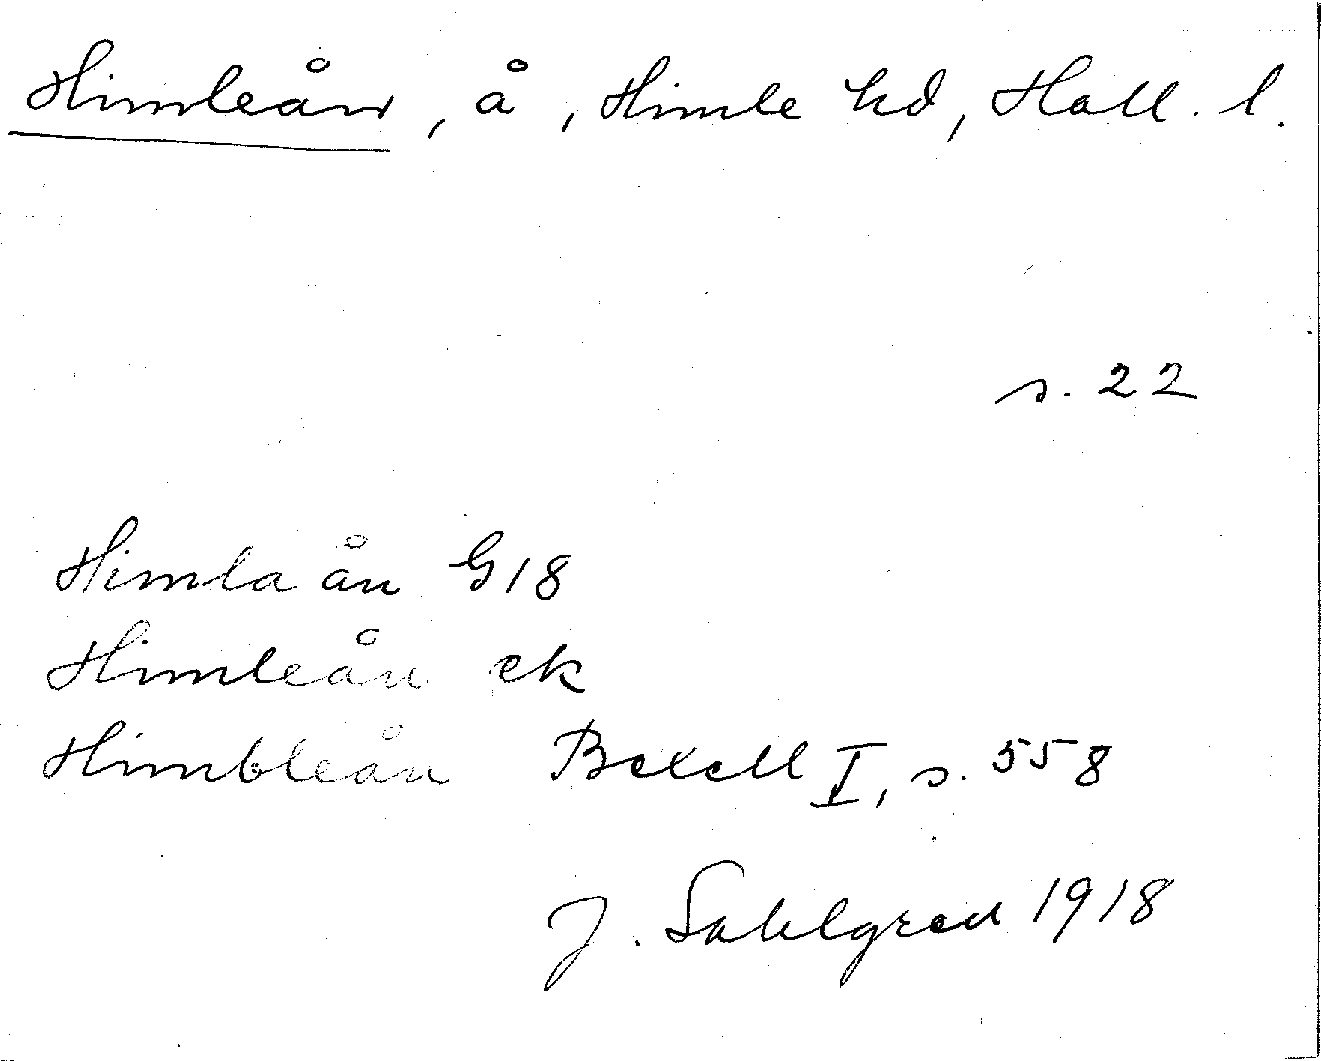 Himleån, å, Himle hd, Hall. l.
s. 22
Himla ån G18
Himleån ek
Himbleån Bexell I, s. 558
J. Sahlgren 1918